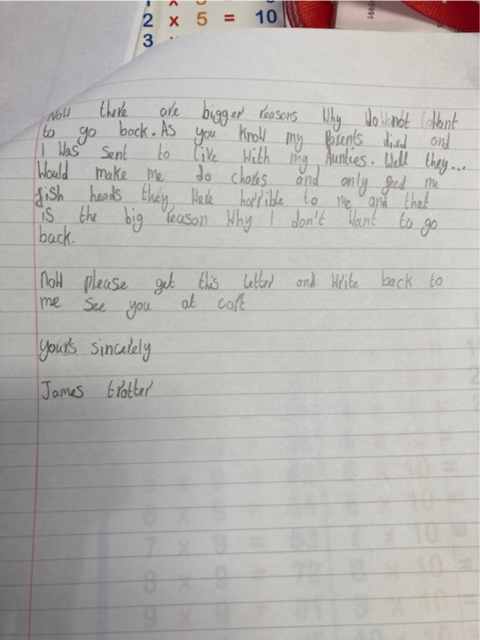 2 x 5 = 10
3
Now there are bigger reasons Why I do not Want
to go back. As you know my Parents died and
I Was sent to live with my Aunties. Well they...
Would make me do chores and only feed me
fish heads they Were horrible to me and that
is the big reason Why I don't Want to go
back.
Now please get this letter and Write back to
me see you at cort
yours sincerely
James trotter
7 x 9 = 63
8 x 9 = 72
9 x 9 = 81